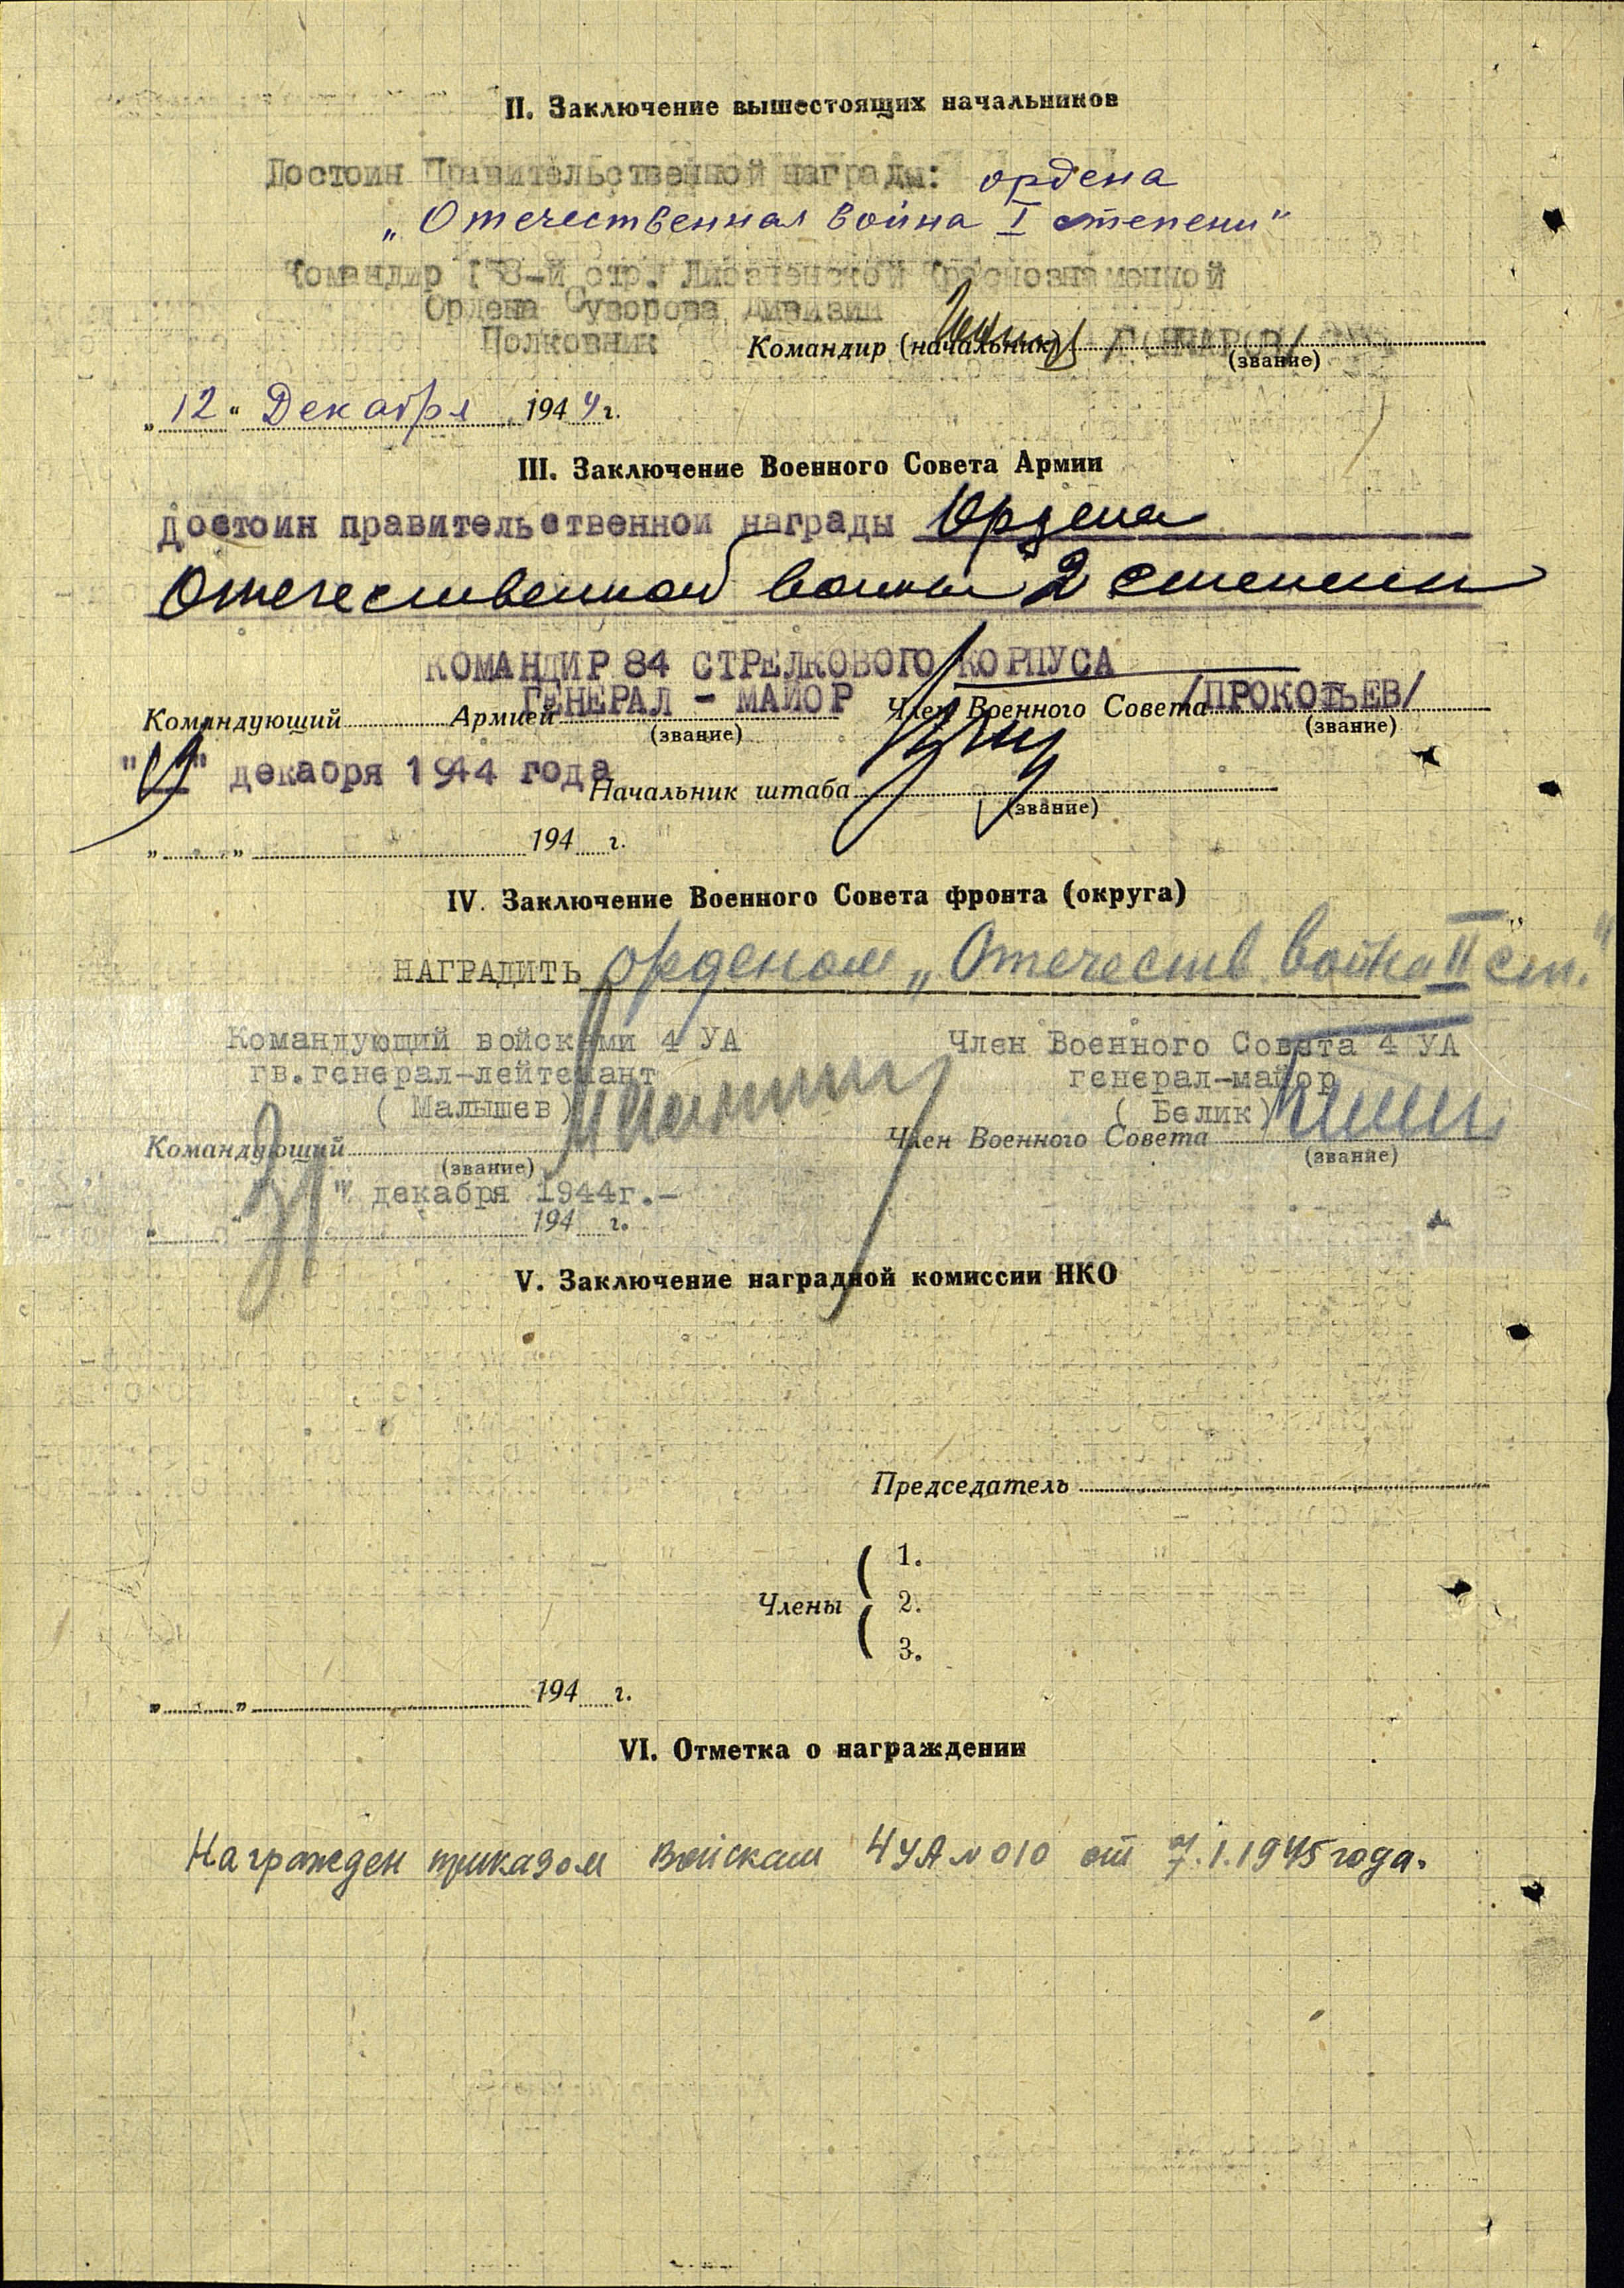 II. Заключение вышестоящих начальников
Достоин Правительственной награды: ордена
„Отечественная война I степени“
Командир 8-й стр. Краснознаменной
Ордена Суворова Дивизии
Полковник
Командир (начальник) /ГОНЧАРОВ/
(звание)
„12“ Декабря 1944 г.
III. Заключение Военного Совета Армии
Достоин правительственной награды Ордена
Отечественной войны 2 степени
КОМАНДИР 84 СТРЕЛКОВОГО КОРПУСА
ГЕНЕРАЛ - МАЙОР /ПРОКОФЬЕВ/
Командующий Армией Член Военного Совета
(звание) (звание)
декабря 1944 года
Начальник штаба
(звание)
„ “ 194 г.
IV. Заключение Военного Совета фронта (округа)
НАГРАДИТЬ орденом „Отечеств. война II ст.“
Командующий войсками 4 УА Член Военного Совета 4 УА
гв.генерал-лейтенант генерал-майор
( Малышев) ( Белик)
Командующий Член Военного Совета
(звание) (звание)
" декабря 1944г.-
„ “ 194 г.
V. Заключение наградной комиссии НКО
Председатель
1.
Члены 2.
3.
„ “ 194 г.
VI. Отметка о награждении
Награжден приказом Войскам 4УА №010 от 7.1.1945 года.